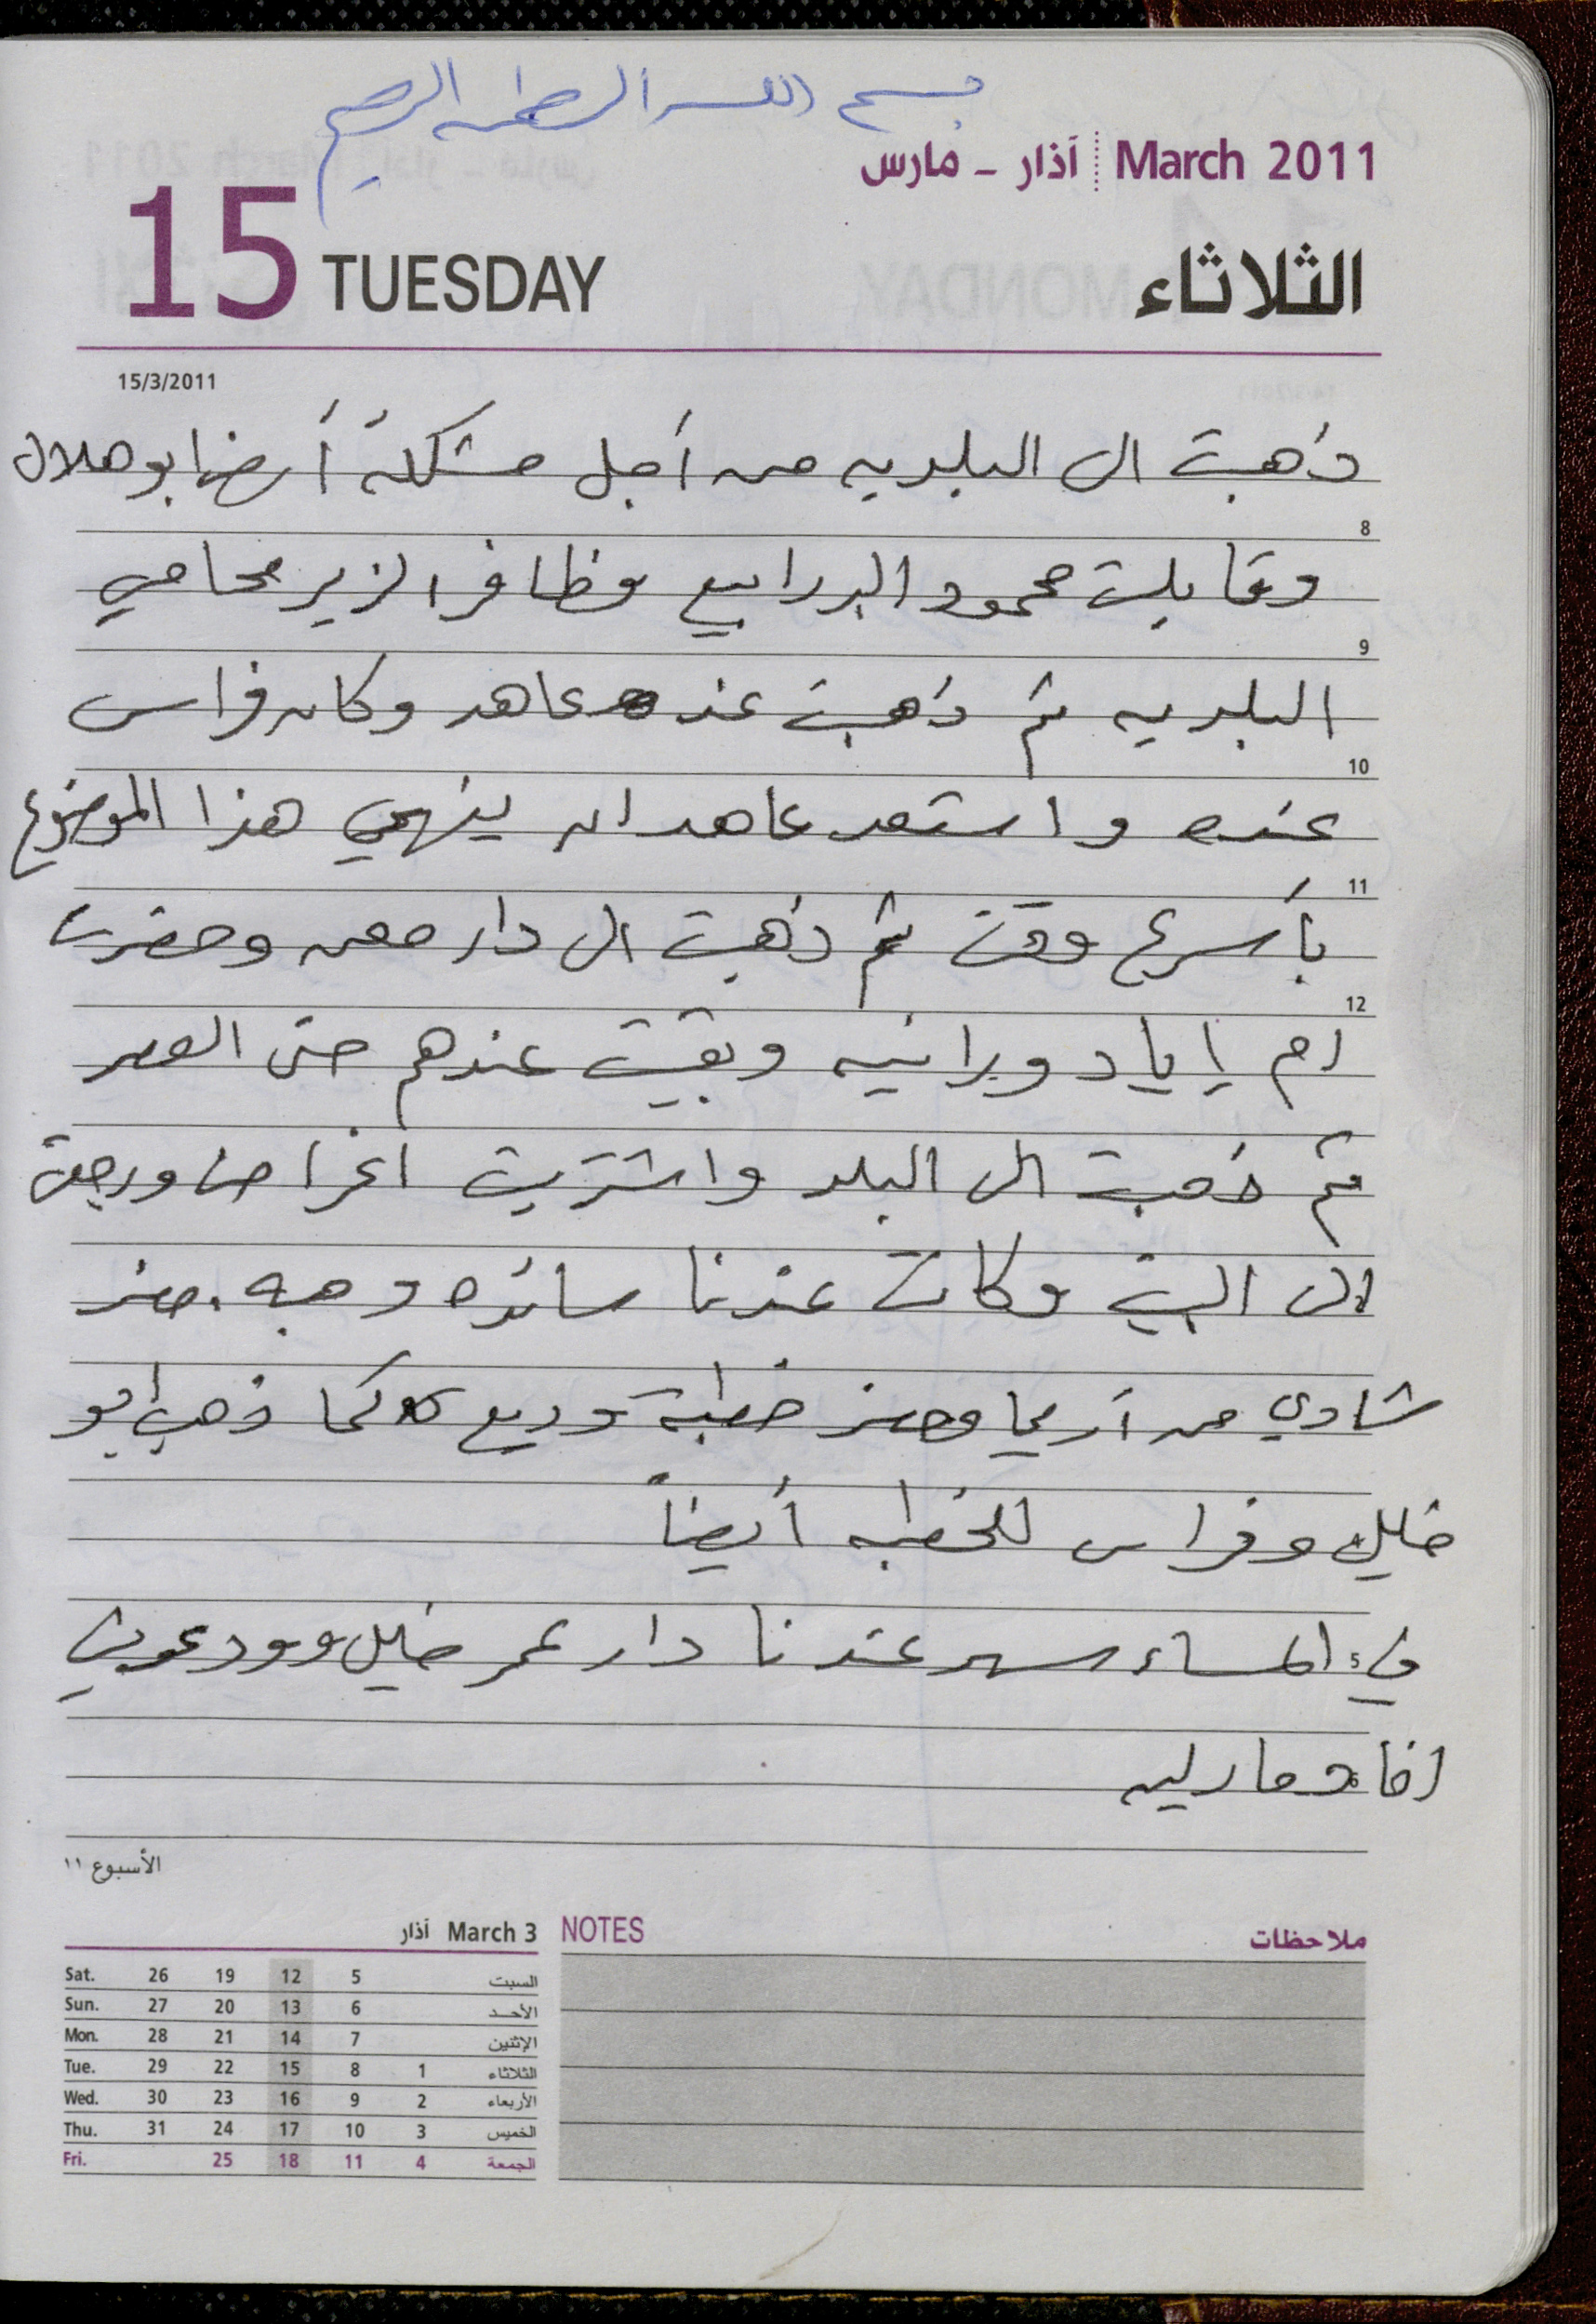 بسم الله الرحمن الرحيم
March 2011 آذار - مارس
15 TUESDAY الثلاثاء
15/3/2011
ذهبت الى البلديه من أجل مشكلة أرض ابو هلال
8
وقابلت محمود البرابيع وظافر الزير محامي
9
البلديه ثم ذهبت عند عاهد وكان فراس
10
عنده واستعد عاهد ان ينهي هذا الموضوع
11
بأسرع وقت ثم ذهبت الى دار معن وحضرت
12
ام إياد ورانيه وبقيت عندهم حتى العصر
ثم ذهبت الى البلد واشتريت اغراض ورجعت
الى البيت وكانت عندنا سائده وهبه حضر
شادي من أريحا وحضر خطبة وديع كما ذهب ابو
خليل وفراس للخطبه أيضاً
في المساء سهر عندنا دار عمر خليل وودعوني
انا وماريه
الأسبوع ١١
March 3 آذار
Sat. 26 19 12 5 السبت
Sun. 27 20 13 6 الأحـد
Mon. 28 21 14 7 الإثنين
Tue. 29 22 15 8 1 الثلاثاء
Wed. 30 23 16 9 2 الأربعاء
Thu. 31 24 17 10 3 الخميس
Fri. 25 18 11 4 الجمعة
NOTES ملاحظات